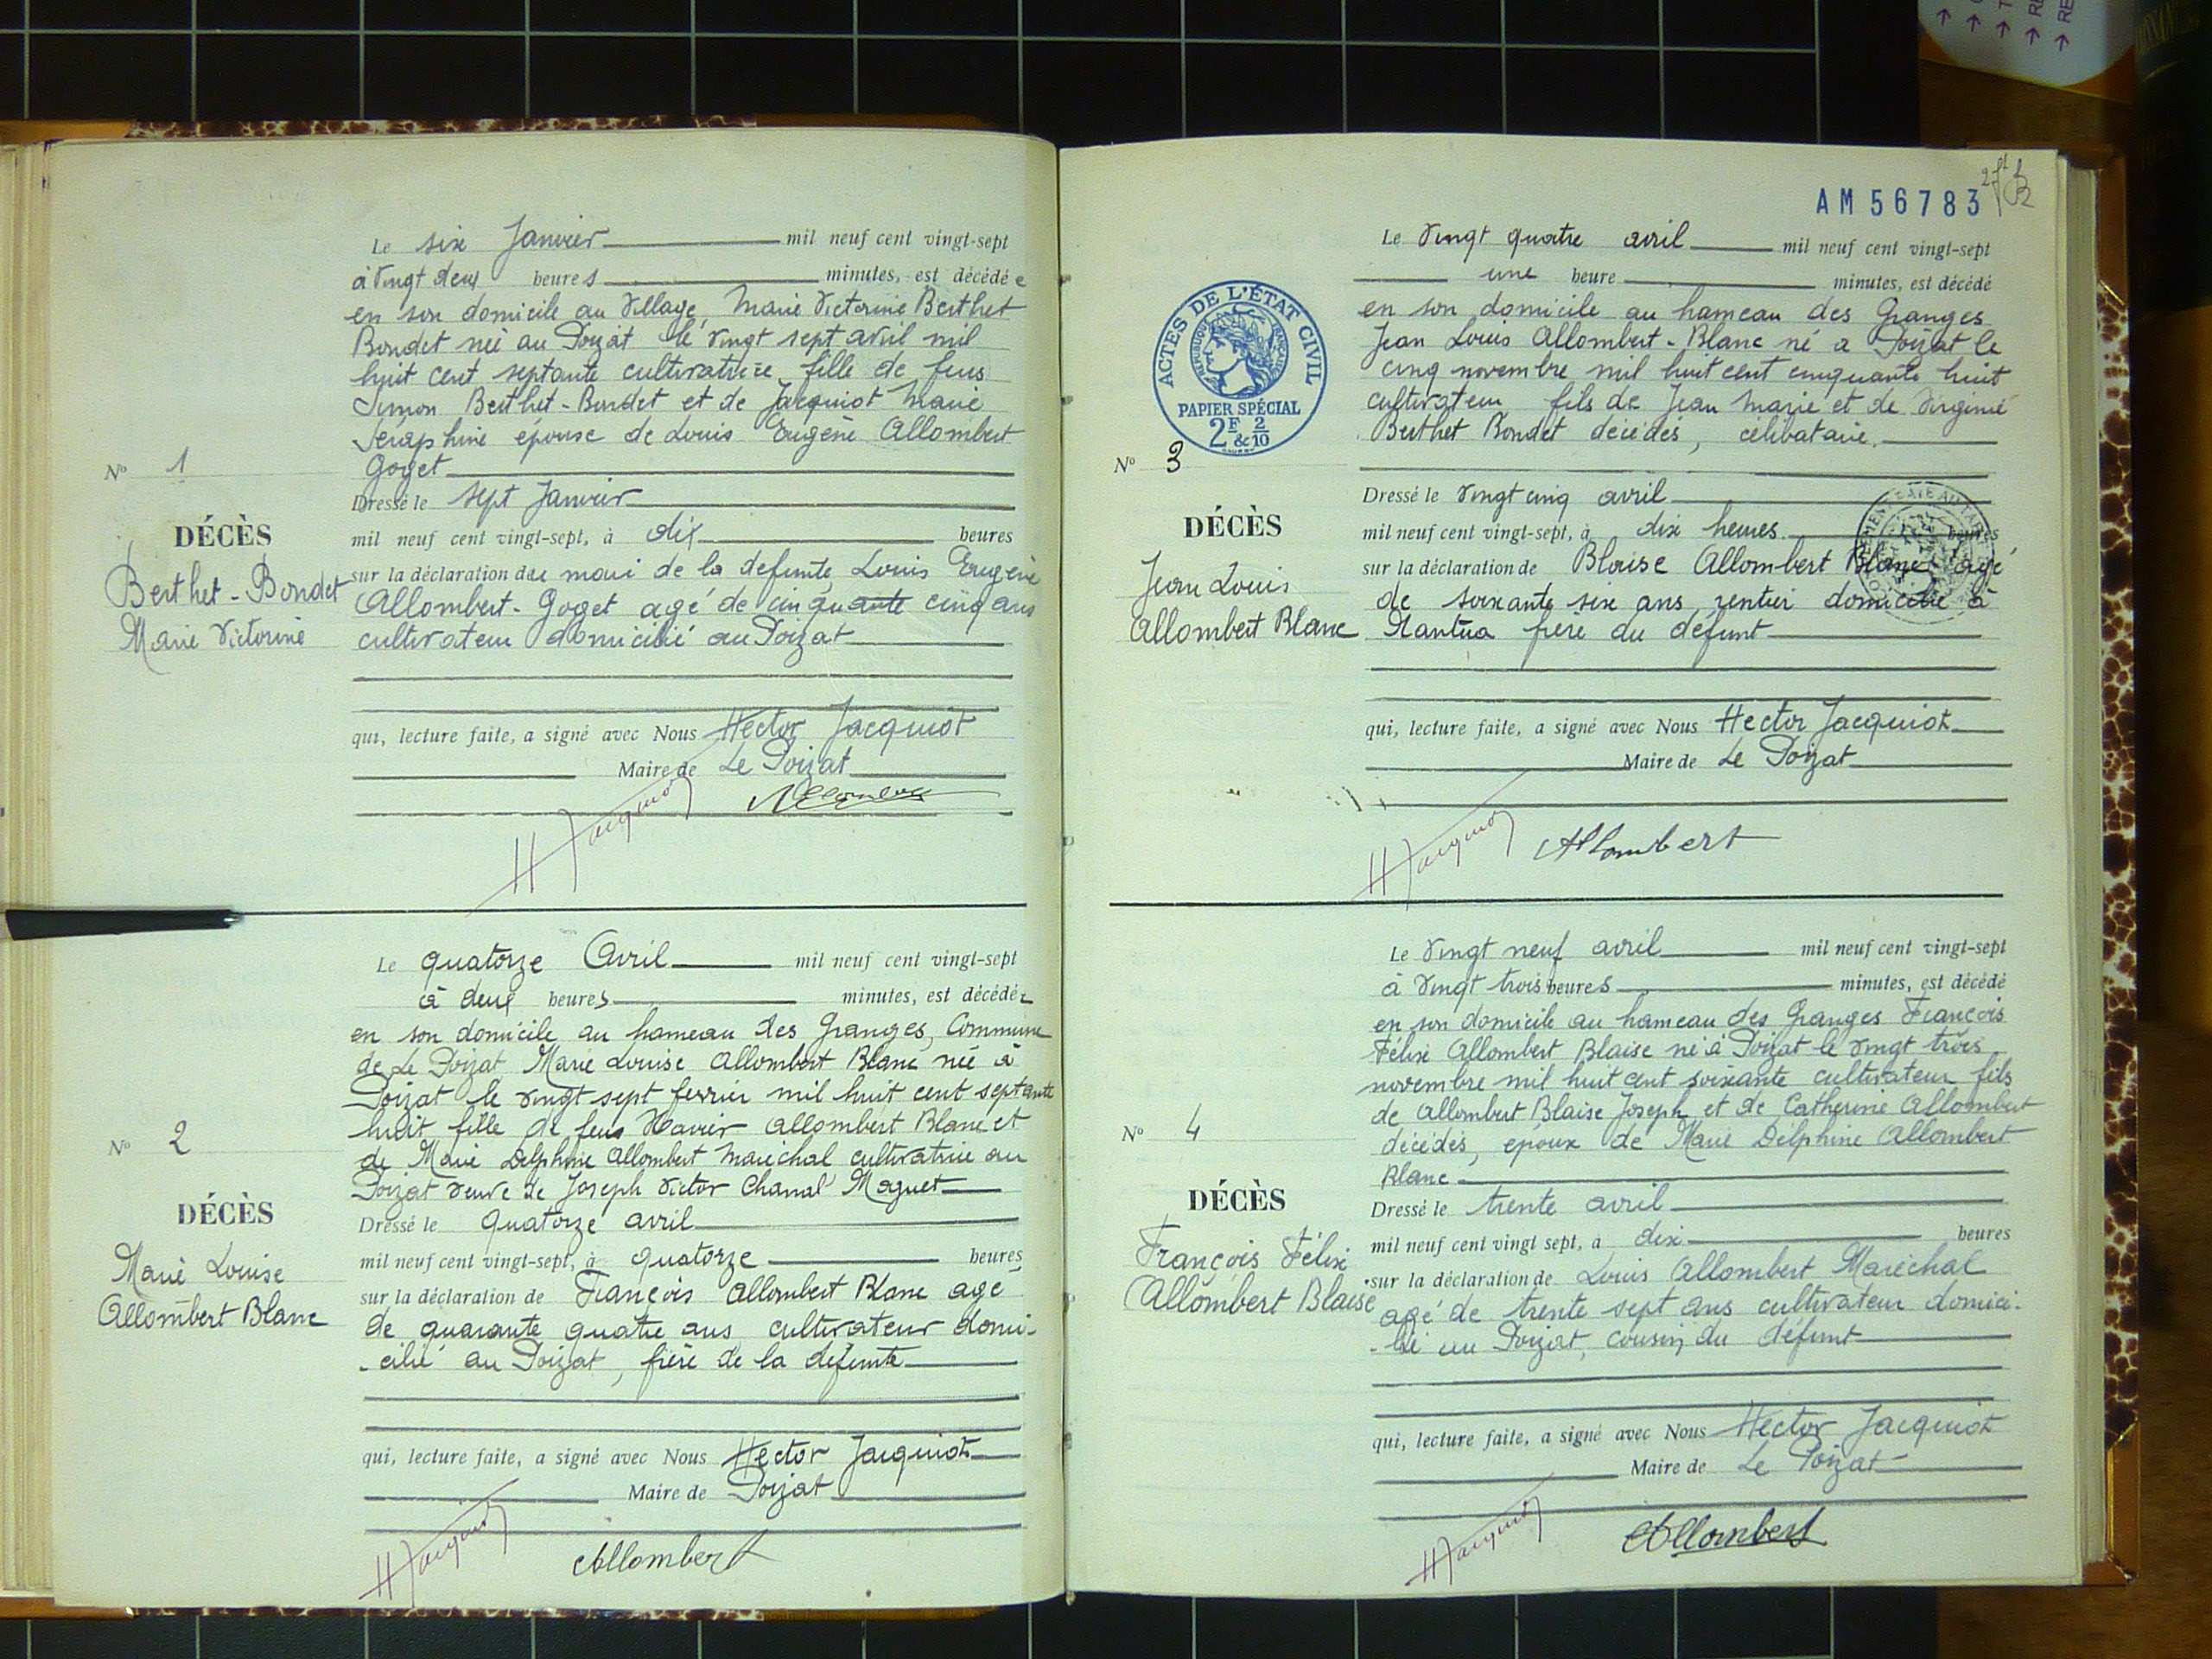 Le six Janvier mil neuf cent vingt-sept
à vingt deux heures minutes, est décédée
en son domicile au Village, Marie Victorine Berthet
Bondet née au Poizat le vingt sept avril mil
huit cent septante cultivatrice fille de feus
Simon Berthet-Bondet et de Jacquiot Marie
Séraphine épouse de Louis Eugène Allombert
Goget
Nº 1
Dressé le sept Janvier
DÉCÈS
mil neuf cent vingt-sept, à dix heures
Berthet-Bondet
Marie Victorine
sur la déclaration du mari de la defunte, Louis Eugène
Allombert-Goget agé de cinquante cinq ans
cultivateur domicilié au Poizat
qui, lecture faite, a signé avec Nous Hector Jacquiot
Maire de Le Poizat
H Jacquiot
Le quatorze Avril mil neuf cent vingt-sept
à deux heures minutes, est décédée
en son domicile au hameau des Granges, Commune
de Le Poizat Marie Louise Allombert Blanc née à
Poizat le vingt sept ferrier mil huit cent septante
huit fille de feus Xavier Allombert Blanc et
de Marie Delphine Allombert Maréchal cultivatrice au
Poizat veuve de Joseph Victor Chanal Maguet
Nº 2
DÉCÈS
Marie Louise
Allombert Blanc
Dressé le quatorze avril
mil neuf cent vingt-sept, à quatorze heures
sur la déclaration de François Allombert Blanc agé
de quarante quatre ans cultivateur domi-
-cilié au Poizat, frère de la défunte
qui, lecture faite, a signé avec Nous Hector Jacquiot
Maire de Poizat
H Jacquiot
Allombert
AM 56783
Le vingt quatre avril mil neuf cent vingt-sept
une heure minutes, est décédé
en son domicile au hameau des Granges
Jean Louis Allombert-Blanc né a Poizat le
cinq novembre mil huit cent cinquante huit
cultivateur fils de Jean Marie et de Virginie
Berthet Bondet décédés, célibataire.
ACTES DE L'ÉTAT CIVIL
REPUBLIQUE FRANÇAISE
PAPIER SPÉCIAL
2F & 2/10
Nº 3
DÉCÈS
Jean Louis
Allombert Blanc
Dressé le vingt cinq avril
mil neuf cent vingt-sept, à dix heures heures
sur la déclaration de Blaise Allombert Blanc agé
de soixante six ans, rentier domicilié à
Nantua frère du défunt
qui, lecture faite, a signé avec Nous Hector Jacquiot
Maire de Le Poizat
H Jacquiot
Allombert
Le vingt neuf avril mil neuf cent vingt-sept
à vingt trois heures minutes, est décédé
en son domicile au hameau des Granges François
Félix Allombert Blaise né à Poizat le vingt trois
novembre mil huit cent soixante cultivateur fils
de Allombert Blaise Joseph et de Catherine Allombert
décédés, époux de Marie Delphine Allombert
Blanc
Nº 4
DÉCÈS
François Félix
Allombert Blaise
Dressé le trente avril
mil neuf cent vingt sept, à dix heures
sur la déclaration de Louis Allombert Maréchal
agé de trente sept ans cultivateur domici-
-lié au Poizat, cousin du défunt
qui, lecture faite, a signé avec Nous Hector Jacquiot
Maire de Le Poizat
H Jacquiot
Allombert